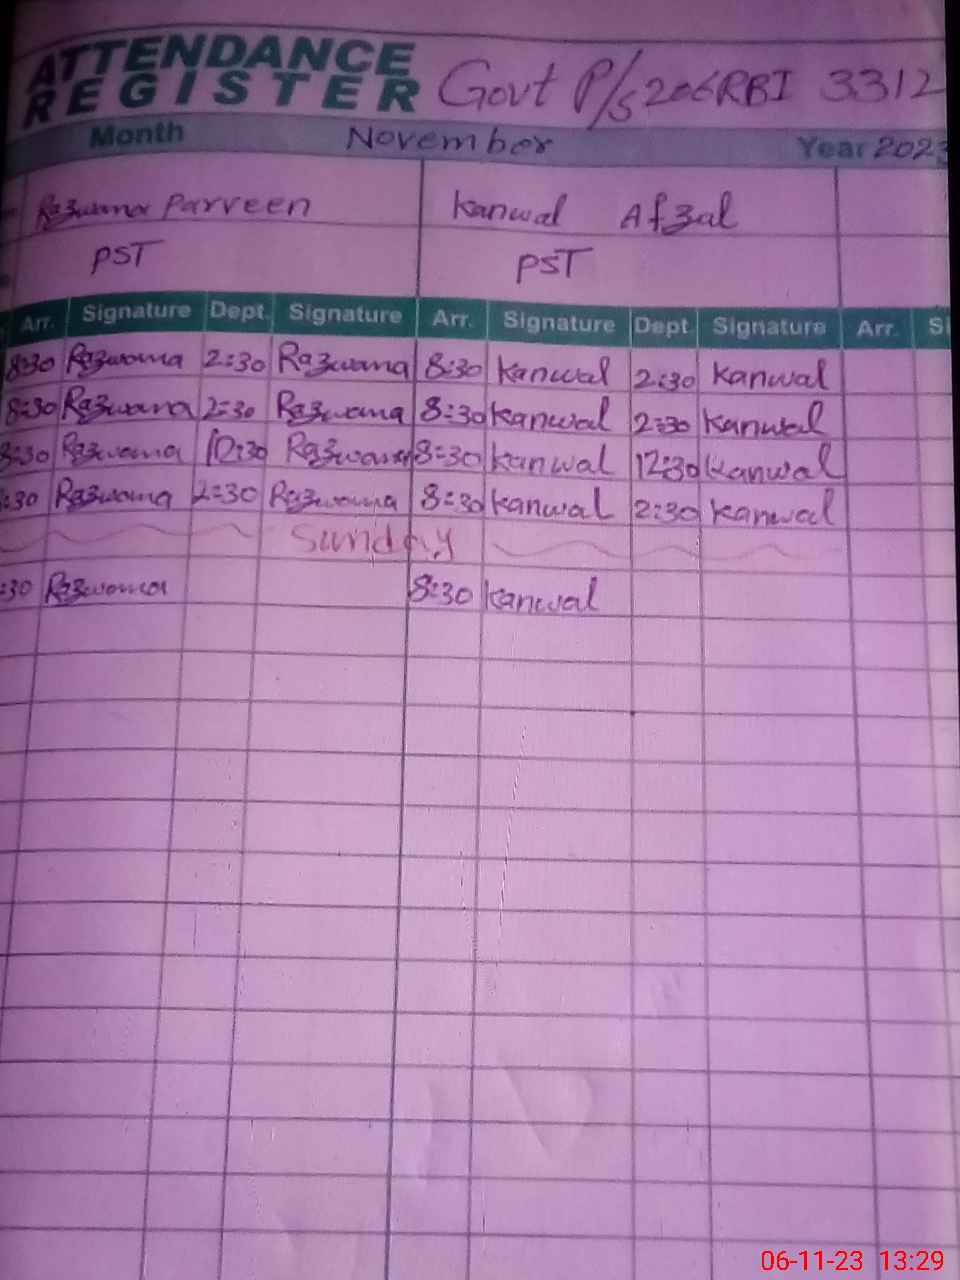 ATTENDANCE
REGISTER Govt P/S 206RBI 3312
Month November Year 2023
Razwana Parveen Kanwal Afzal
PST PST
Arr. Signature Dept. Signature Arr. Signature Dept. Signature Arr. Si
8:30 Razwana 2:30 Razwana 8:30 Kanwal 2:30 Kanwal
8:30 Razwana 2:30 Razwana 8:30 Kanwal 2:30 Kanwal
8:30 Razwana 12:30 Razwana 8:30 Kanwal 12:30 Kanwal
:30 Razwana 2:30 Razwana 8:30 Kanwal 2:30 Kanwal
Sunday
:30 Razwana 8:30 Kanwal
06-11-23 13:29